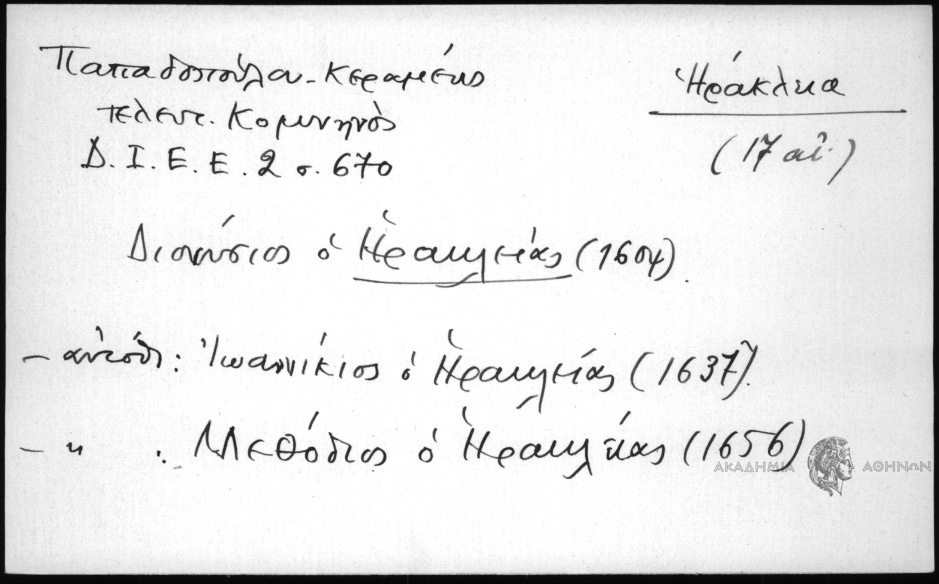 Παπαδοπούλου-Κεραμέως
Ἡράκλεια
τελευτ. Κομνηνὸς
(17 αἰ.)
Δ. Ι. Ε. Ε. 2 σ. 670
Διονύσιος ὁ Ἡρακλείας (1604).
— αὐτόθι: Ἰωαννίκιος ὁ Ἡρακλείας (1637).
— " : Μεθόδιος ὁ Ἡρακλείας (1656)
ΑΚΑΔΗΜΙΑ ΑΘΗΝΩΝ